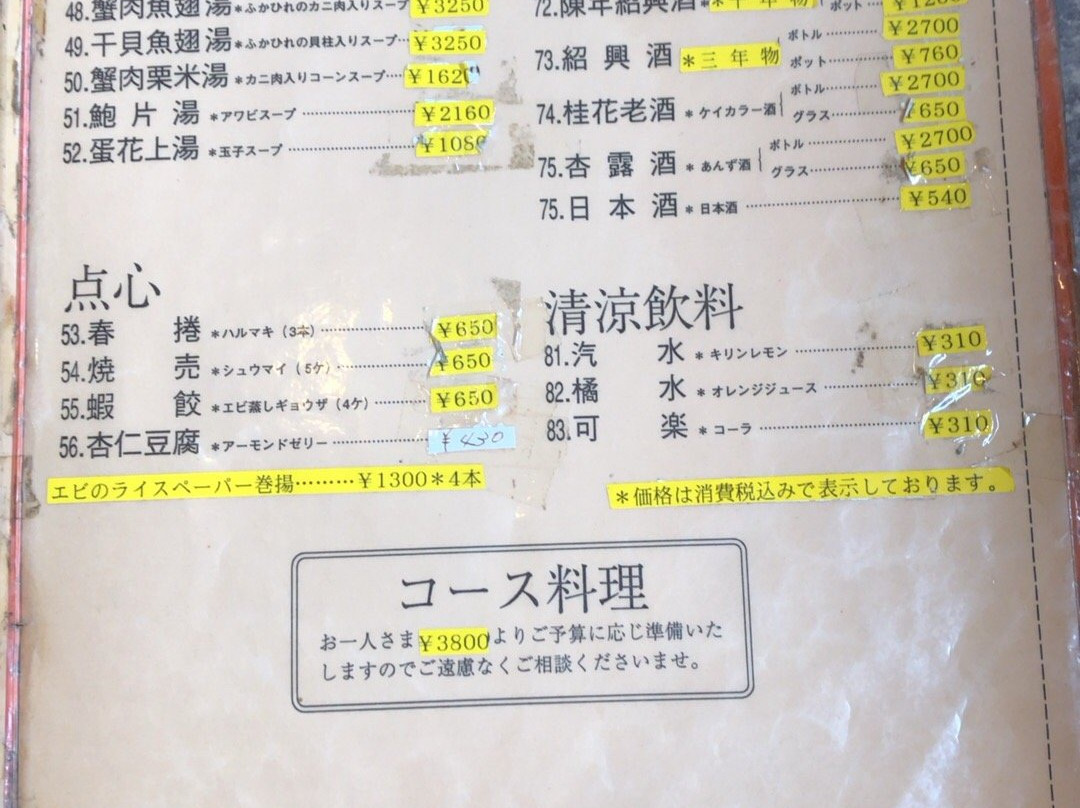 48.蟹肉魚翅湯＊ふかひれのカニ肉入りスープ…¥3250
49.干貝魚翅湯＊ふかひれの貝柱入りスープ…¥3250
50.蟹肉栗米湯＊カニ肉入りコーンスープ…¥1620
51.鮑片湯＊アワビスープ…¥2160
52.蛋花上湯＊玉子スープ…¥1080
点心
53.春捲＊ハルマキ（3本）…¥650
54.焼売＊シュウマイ（5ケ）…¥650
55.蝦餃＊エビ蒸しギョウザ（4ケ）…¥650
56.杏仁豆腐＊アーモンドゼリー…¥430
エビのライスペーパー巻揚………¥1300＊4本
72.陳年紹興酒
ポット…
ボトル…¥2700
73.紹興酒＊三年物
ポット…¥760
ボトル…¥2700
74.桂花老酒＊ケイカラー酒
グラス…¥650
ボトル…¥2700
75.杏露酒＊あんず酒
グラス…¥650
75.日本酒＊日本酒…¥540
清涼飲料
81.汽水＊キリンレモン…¥310
82.橘水＊オレンジジュース…¥310
83.可楽＊コーラ…¥310
＊価格は消費税込みで表示しております。
コース料理
お一人さま¥3800よりご予算に応じ準備いた
しますのでご遠慮なくご相談くださいませ。